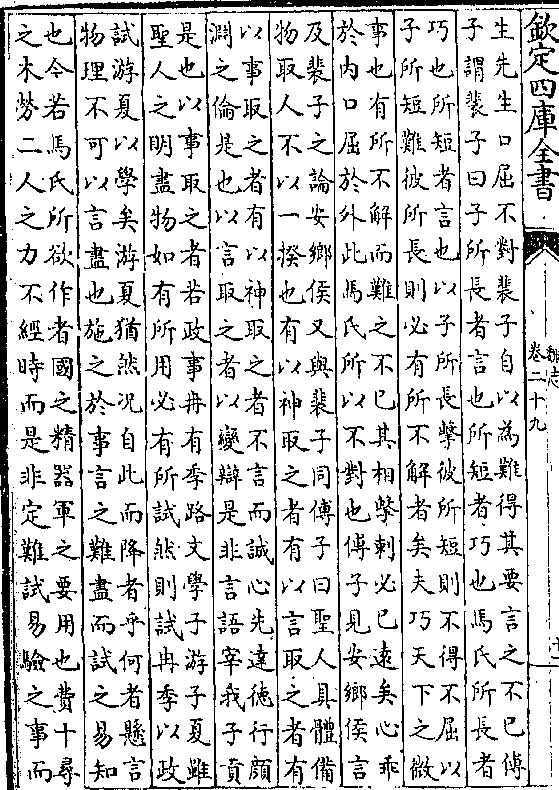 欽定四庫全書
魏志
卷二十九
生先生口屈不對裴子自以為難得其要言之不已傅
子謂裴子曰子所長者言也所短者巧也馬氏所長者
巧也所短者言也以子所長擊彼所短則不得不屈以
子所短難彼所長則必有所不解者矣夫巧天下之微
事也有所不解而難之不已其相擊刺必已遠矣心乖
於內口屈於外此馬氏所以不對也傅子見安鄉侯言
及裴子之論安鄉侯又與裴子同傅子曰聖人具體備
物取人不以一揆也有以神取之者有以言取之者有
以事取之者有以神取之者不言而誠心先達德行顏
淵之倫是也以言取之者以變辯是非言語宰我子貢
是也以事取之者若政事冉有季路文學子游子夏雖
聖人之明盡物如有所用必有所試然則試冉季以政
試游夏以學矣游夏猶然況自此而降者乎何者懸言
物理不可以言盡也施之於事言之難盡而試之易知
也今若馬氏所欲作者國之精器軍之要用也費十尋
之木勞二人之力不經時而是非定難試易驗之事而